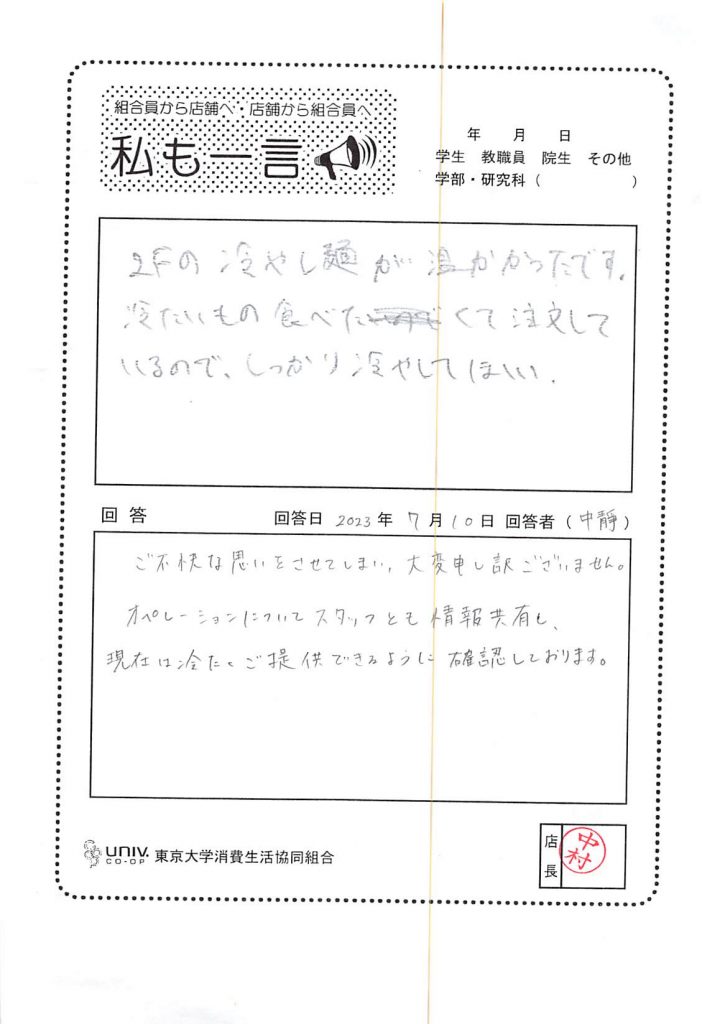 組合員から店舗へ・店舗から組合員へ
私も一言
年 月 日
学生 教職員 院生 その他
学部・研究科（ ）
2Fの冷やし麺が温かかったです。
冷たいもの食べたくて注文して
いるので、しっかり冷やしてほしい.
回答 回答日 2023年 7月10日 回答者（中靜）
ご不快な思いをさせてしまい, 大変申し訳ございません。
オペレーションについてスタッフとも情報共有し、
現在は冷たくご提供できるように確認しております。
UNIV. CO-OP 東京大学消費生活協同組合
店長 中村